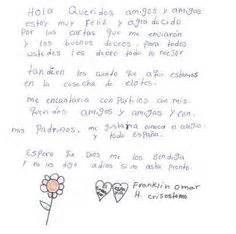 Hola Queridos amigos y amigas
estoy muy feliz y agradecido
Por las cartas que me enviaron
y los buenos deceos. para todos
ustedes les deceo todo lo mejor
tanbien les cuento que aqui estamos
en la cosecha de elotes.
me encantaria conpartilos con mis.
Queridos amigos y amigas y con.
mis Padrinos. me gustaria conocer
y todo España.
Espero que Dios me los Bendiga
y no les digo adios si no asta pronto.
Franklin Omar
H. crisostomo